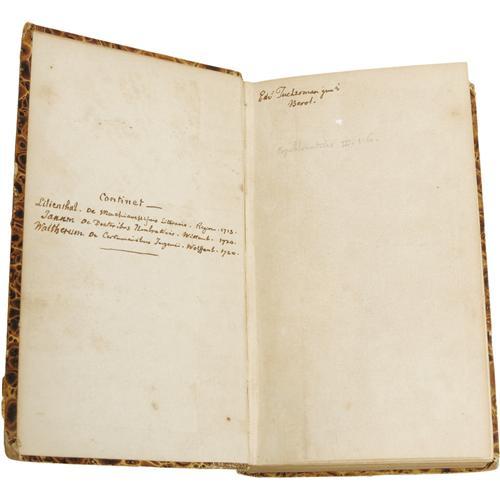 Continet —
Lilienthal. De Machiavellismo Litterario. Regiom. 1713.
Jannum De Doctoribus Umbraticis. Wittenb. 1720.
Waltherum De Certaminibus Ingenii. Wolffenb. 1720.
Edv Tuckerman
Berol.
III.